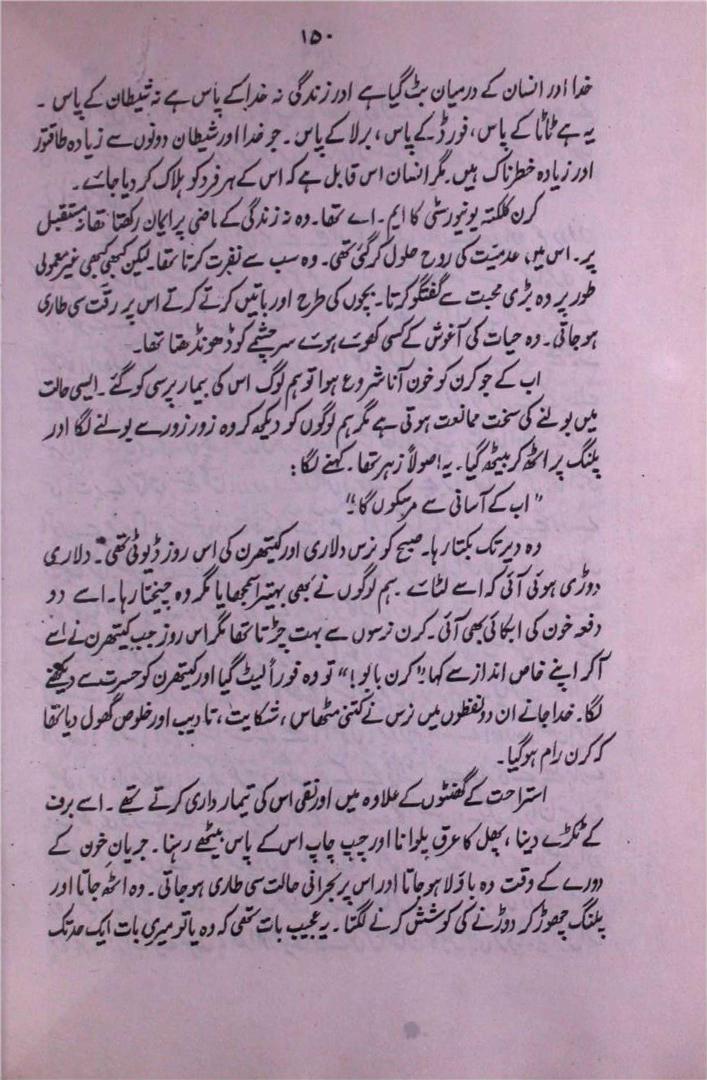 ۱۵۰
خدا اور انسان کے درمیان بٹ گیا ہے اور زندگی نہ خدا کے پاس ہے نہ شیطان کے پاس ۔
یہ ہے ٹاٹا کے پاس، فورڈ کے پاس، برلا کے پاس ۔ جو خدا اور شیطان دونوں سے زیادہ طاقتور
اور زیادہ خطرناک ہیں۔ مگر انسان اس قابل ہے کہ اس کے ہر فرد کو ہلاک کر دیا جائے ۔
کرن کلکتہ یونیورسٹی کا ایم ۔ اے تھا۔ وہ نہ زندگی کے ماضی پر ایمان رکھتا تھا نہ مستقبل
پر ۔ اس میں، عدمیّت کی روح حلول کر گئی تھی۔ وہ سب سے نفرت کرتا تھا۔ لیکن کبھی کبھی غیر معمولی
طور پر وہ بڑی محبت سے گفتگو کرتا ۔ بچوں کی طرح اور باتیں کرتے کرتے اس پر رقّت سی طاری
ہو جاتی ۔ وہ حیات کی آغوش کے کسی کھوئے ہوئے سرچشمے کو ڈھونڈھتا تھا۔
اب کے جو کرن کو خون آنا شروع ہوا تو ہم لوگ اس کی بیمار پرسی کو گئے ۔ ایسی حالت
میں بولنے کی سخت ممانعت ہوتی ہے مگر ہم لوگوں کو دیکھ کر وہ زور زور سے بولنے لگا اور
پلنگ پر اٹھ کر بیٹھ گیا ۔ یہ اصولاً زہر تھا ۔ کہنے لگا :
"اب کے آسانی سے مر سکوں گا"
وہ دیر تک بکتا رہا۔ صبح کو نرس دلاری اور کیتھرن کی اس روز ڈیوٹی تھی ۔ دلاری
دوڑی ہوئی آئی کہ اسے لٹائے ۔ ہم لوگوں نے بھی بہتیرا سمجھایا مگر وہ چیختا رہا ۔ اسے دو
دفعہ خون کی ابکائی بھی آئی ۔ کرن نرسوں سے بہت چڑتا تھا مگر اس روز جب کیتھرن نے اسے
آکر اپنے خاص انداز سے کہا "کرن بابو!" تو وہ فوراً لیٹ گیا اور کیتھرن کو حسرت سے دیکھنے
لگا ۔ خدا جانے ان دو لفظوں میں نرس نے کتنی مٹھاس ، شکایت ، تادیب اور خلوص گھول دیا تھا
کہ کرن رام ہو گیا ۔
استراحت کے گھنٹوں کے علاوہ میں اور نقی اس کی تیمار داری کرتے تھے ۔ اسے برف
کے ٹکڑے دینا ، پھل کا عرق پلوانا اور چپ چاپ اس کے پاس بیٹھے رہنا ۔ جریانِ خون کے
دورے کے وقت وہ باؤلا ہو جاتا اور اس پر بحرانی حالت سی طاری ہو جاتی ۔ وہ اٹھ جاتا اور
پلنگ چھوڑ کر دوڑنے کی کوشش کرنے لگتا ۔ یہ عجیب بات تھی کہ وہ یا تو میری بات ایک حد تک